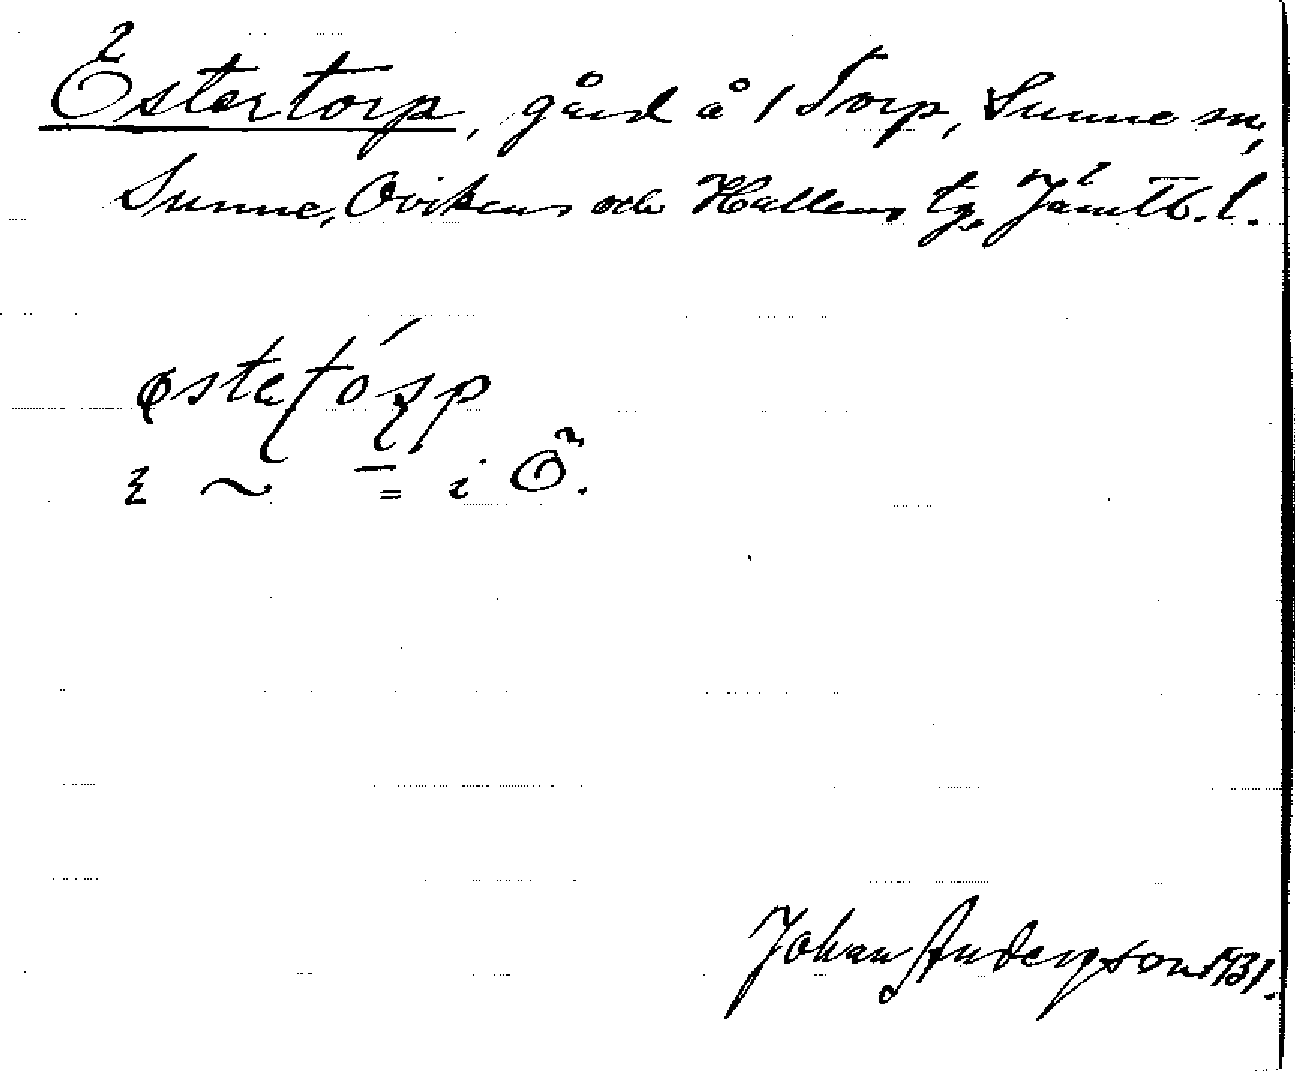 Östertorp, gård å 1 Torp, Sunne sn,
Sunne, Ovikens och Hallens tg, Jämtl. l.
i Ö.
Johan Anderson 1931.